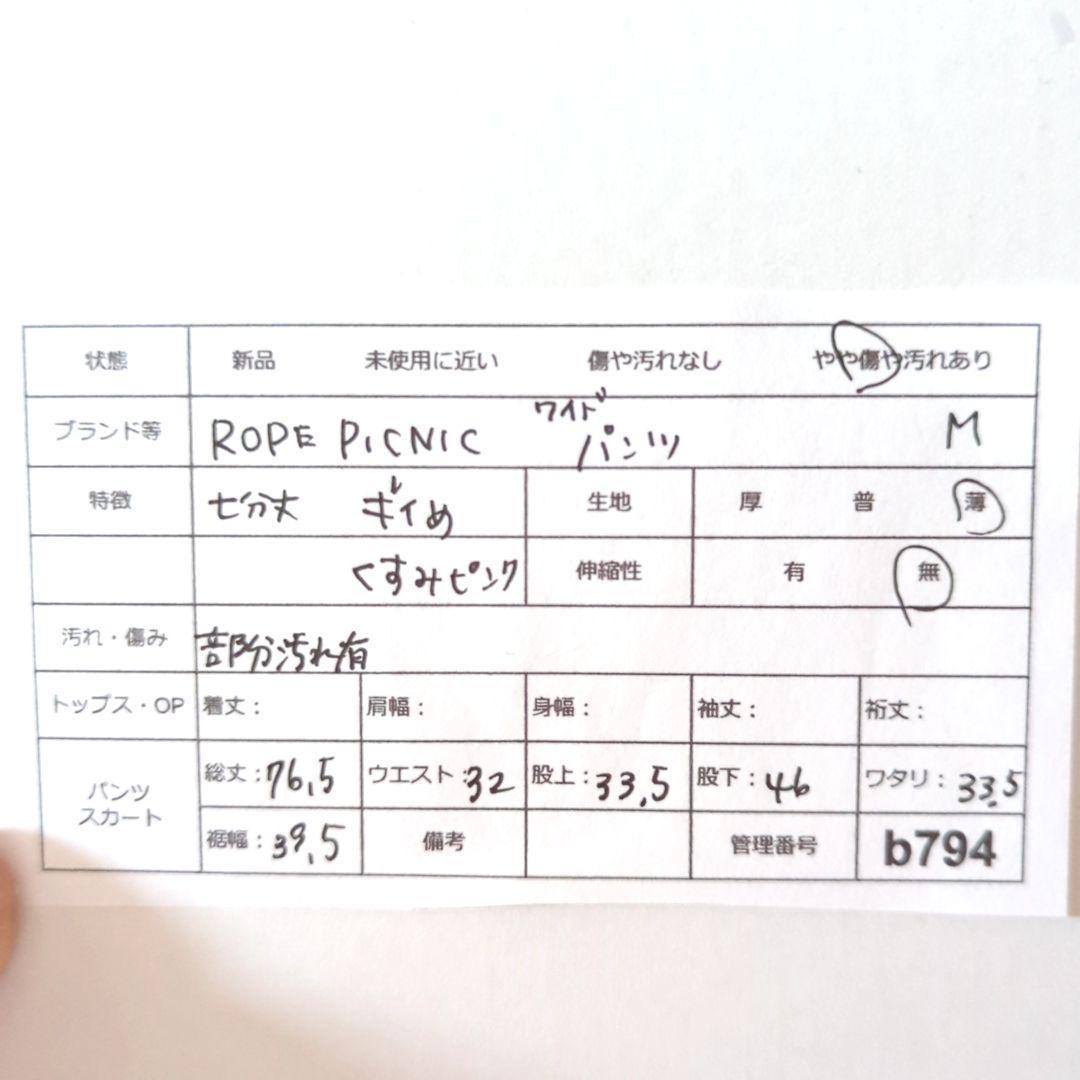 状態 新品 未使用に近い 傷や汚れなし やや傷や汚れあり
ブランド等 ROPE PICNIC ワイドパンツ M
特徴 七分丈 ギイめ 生地 厚 普 薄
くすみピンク 伸縮性 有 無
汚れ・傷み 部分汚れ有
トップス・OP 着丈: 肩幅: 身幅: 袖丈: 裄丈:
パンツ
スカート
総丈:76.5 ウエスト:32 股上:33.5 股下:46 ワタリ:33.5
裾幅:39.5 備考 管理番号 b794